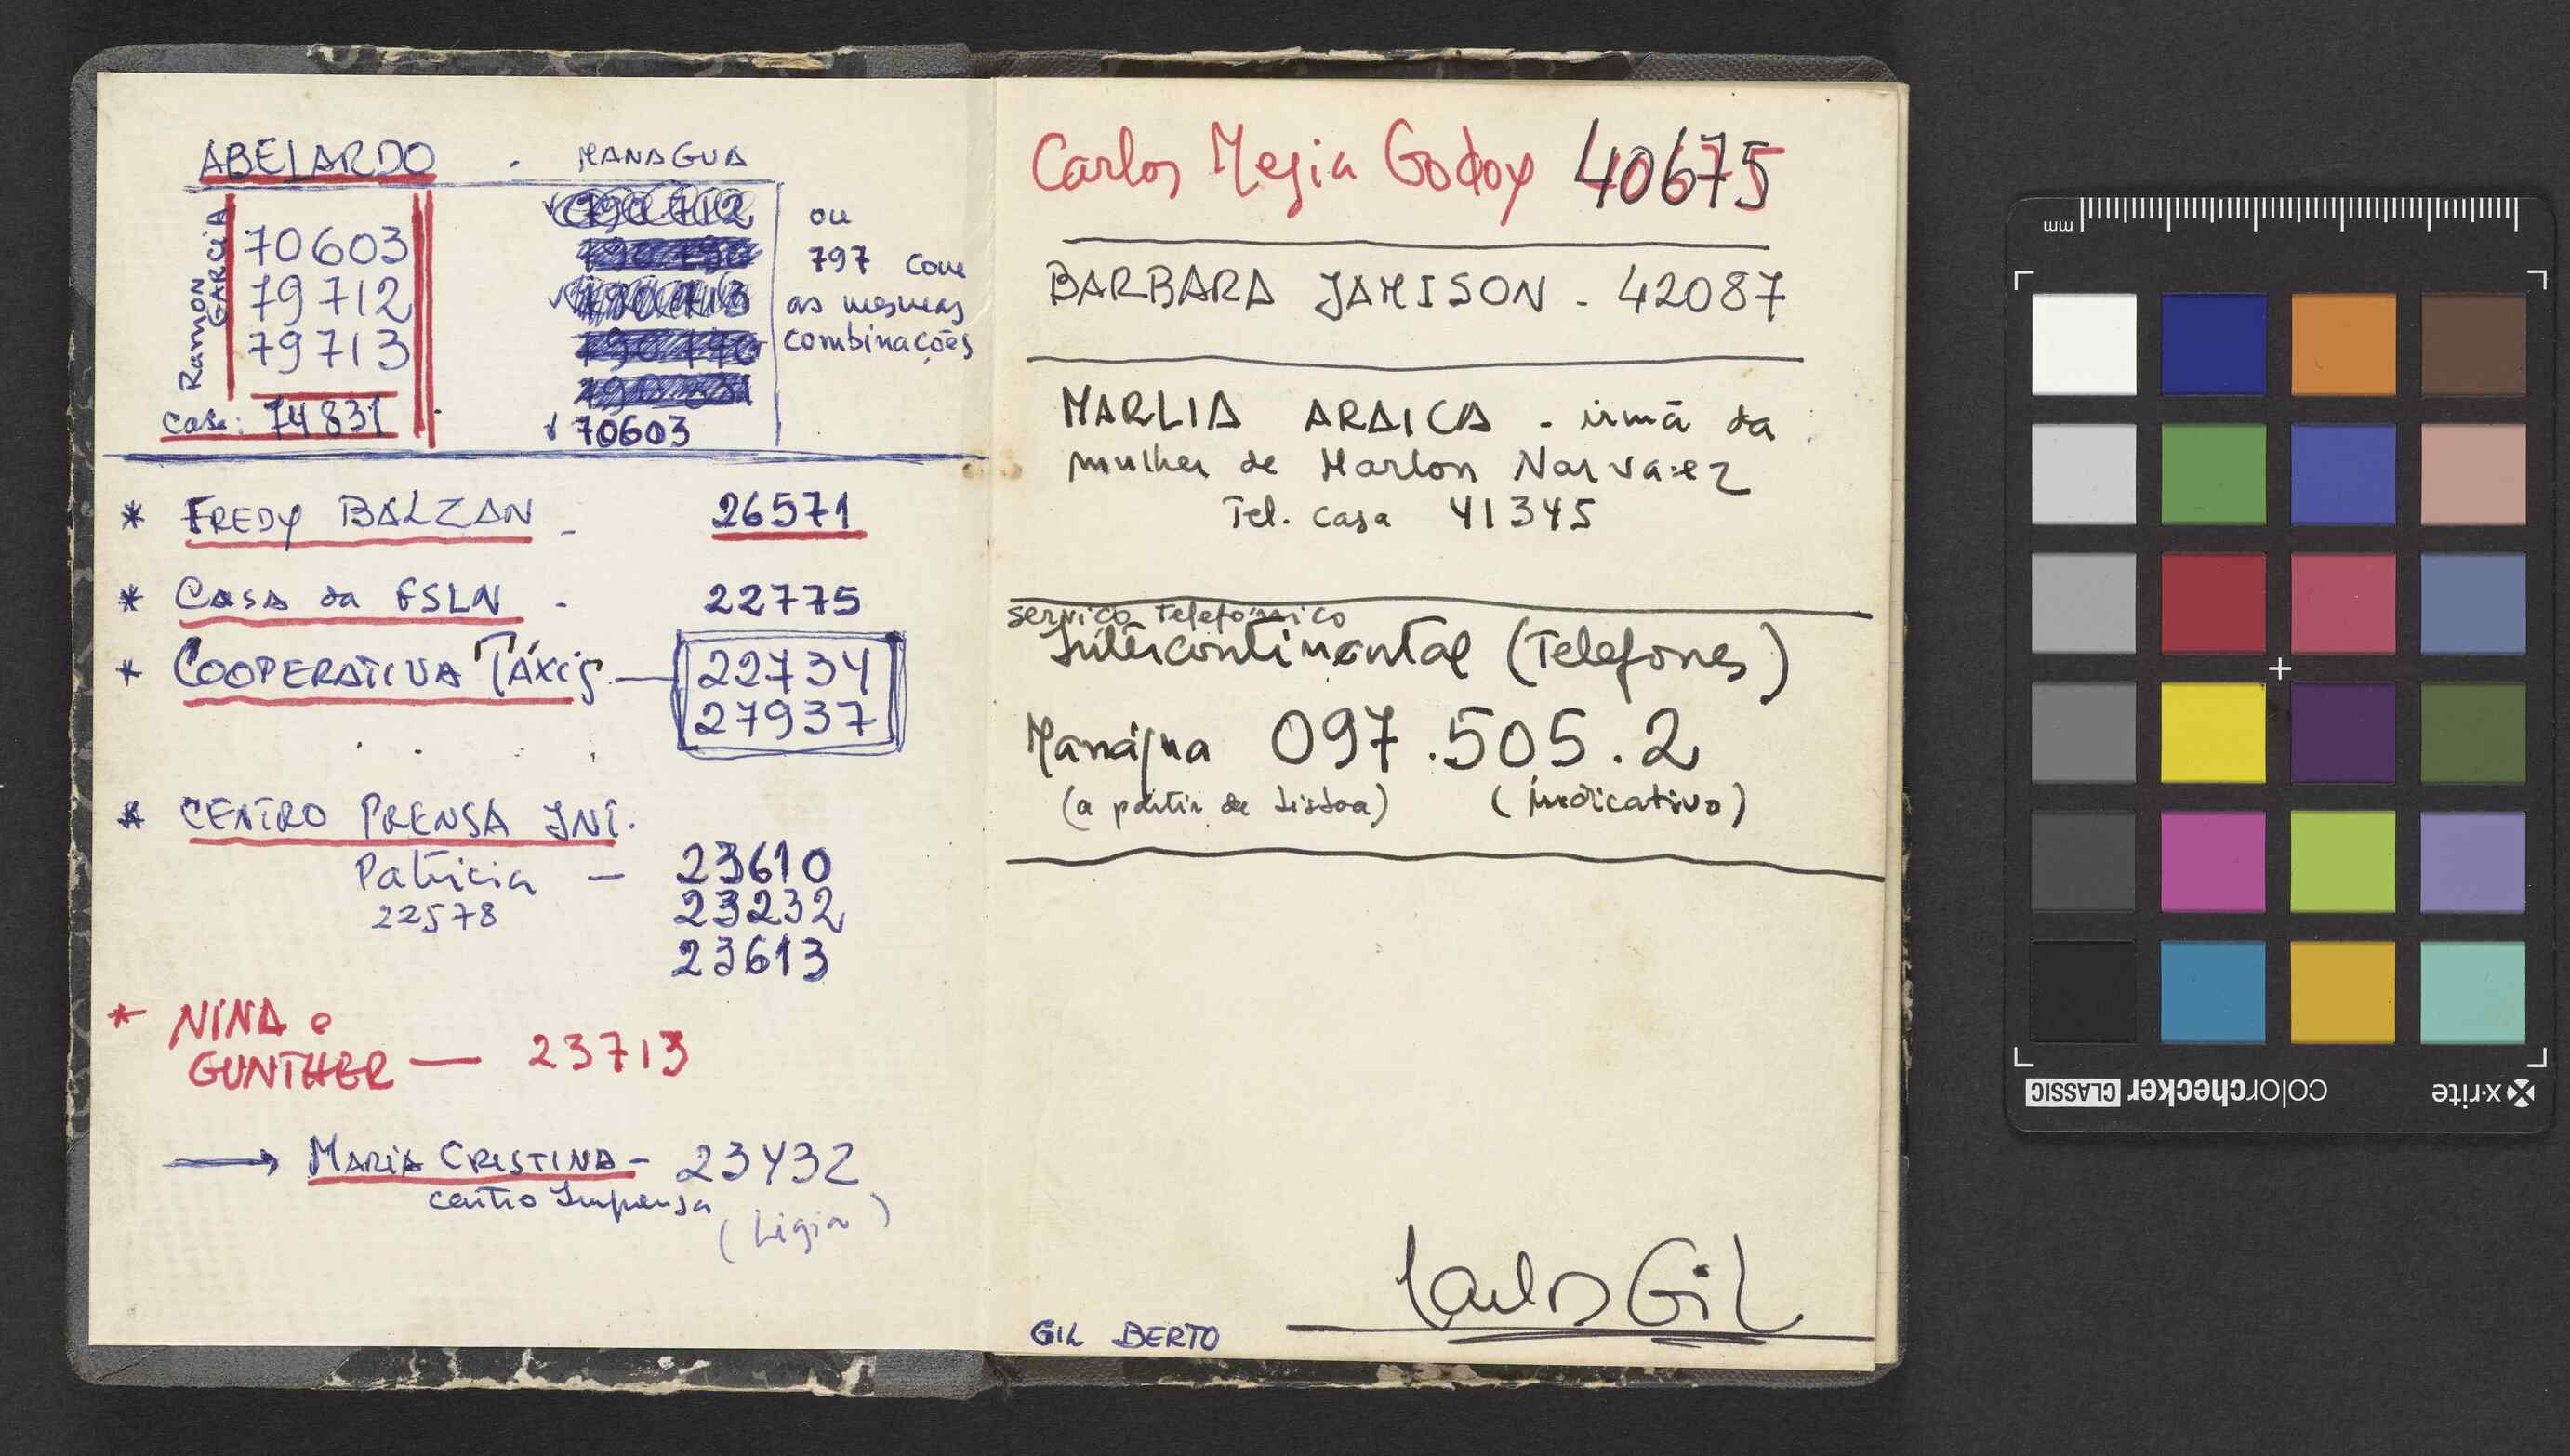 ABELARDO - MANAGUA
Ramon GARCIA
70603
79712
79713
casa: 74831
70603
ou
797 com
as mesmas
combinações
* FREDY BALZAN - 26571
* CASA da FSLN - 22775
* COOPERATIVA TÁXIS — 22734
27937
* CENTRO PRENSA INT.
Patricia — 23610
22578
23232
23613
* NINA e
GUNTHER — 23713
→ MARIA CRISTINA - 23432
centro Imprensa
(Ligia)
Carlos Mejia Godoy 40675
BARBARA JAMISON - 42087
MARLIA ARAICA - irmã da
mulher de Marlon Narvaez
Tel. casa 41345
serviço Telefónico
Intercontinental (Telefones)
Manágua 097.505.2
(a partir de Lisboa) (indicativo)
Carlos Gil
GIL BERTO
mm
colorchecker CLASSIC
x-rite